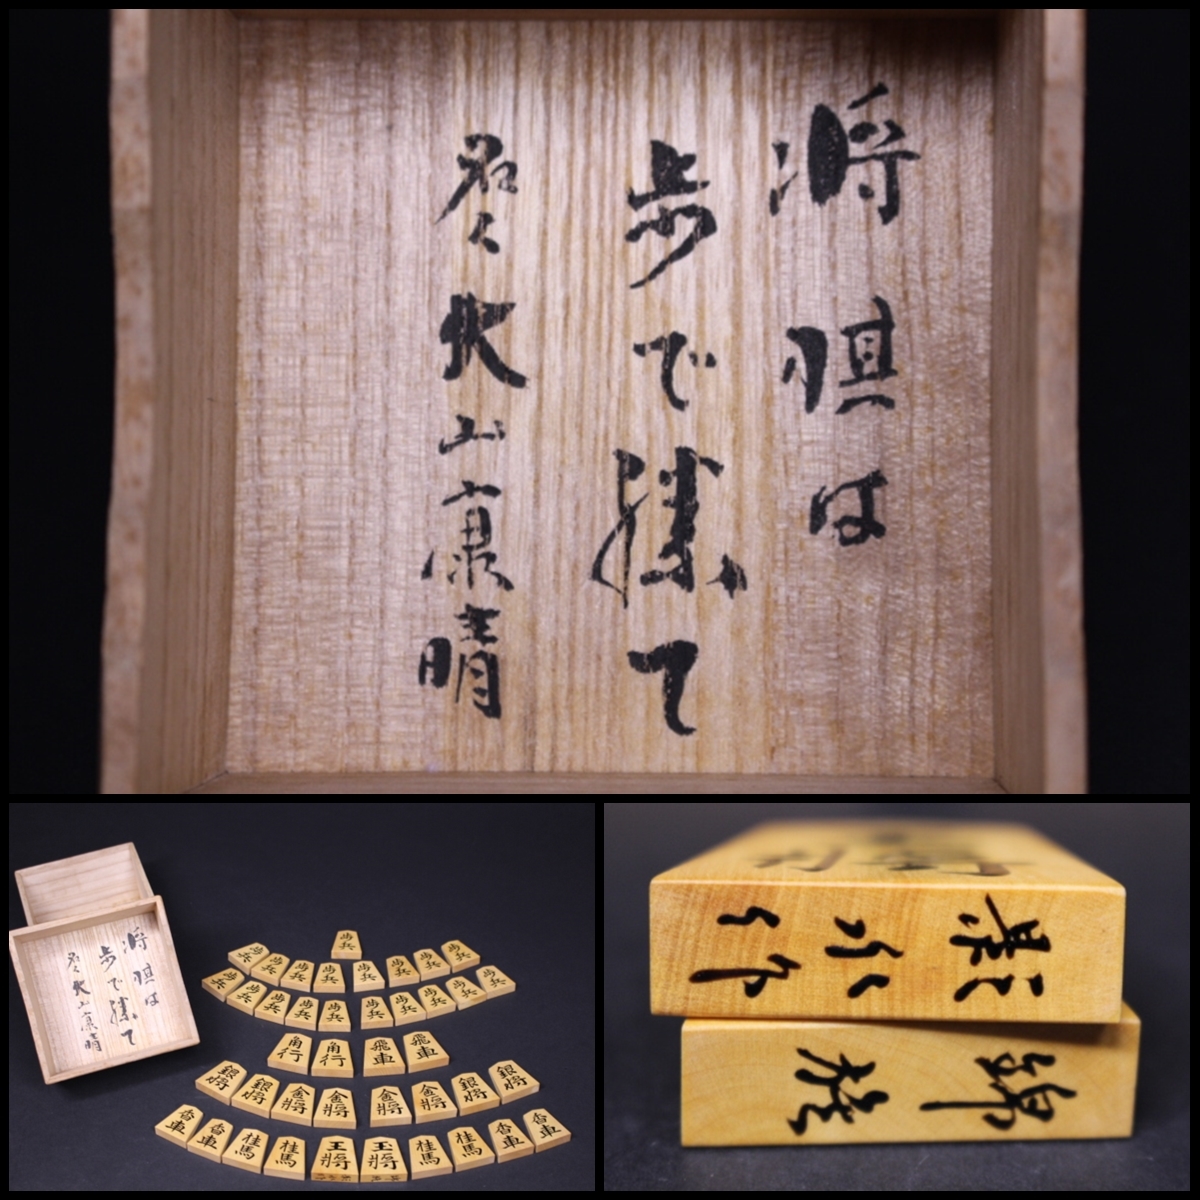 将棋は
歩で勝て
名人 大山康晴
将棋は
歩で勝て
名人 大山康晴
歩兵
歩兵 歩兵 歩兵 歩兵 歩兵 歩兵 歩兵 歩兵
歩兵 歩兵 歩兵 歩兵 歩兵 歩兵 歩兵 歩兵 歩兵 歩兵
角行 角行 飛車 飛車
銀将 銀将 金將 金將 金將 金將 銀将 銀将
香車 香車 桂馬 桂馬 王將 玉將 桂馬 桂馬 香車 香車
影水作
錦旗